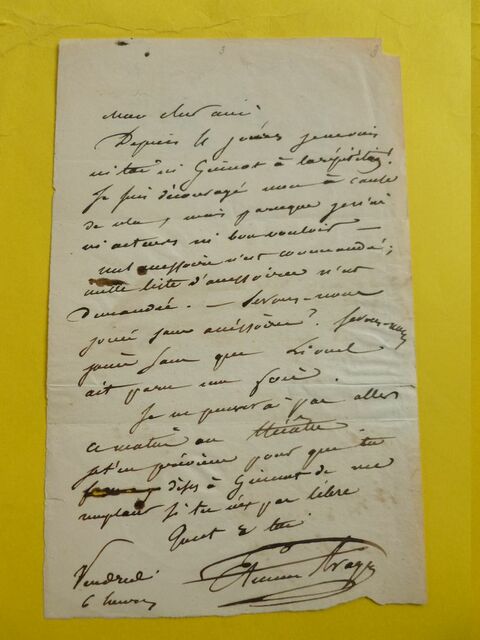 3 3
Mon cher ami
Depuis 6 jours je ne vois
ni toi ni Guinot à la répétition !
Je suis découragé non à cause
de cela, mais parceque je n'ai
ni acteurs ni bon vouloir —
nul accessoire n'est commandé ;
nulle liste d'accessoires n'est
demandée. — Serons-nous
joués sans accessoires ? Serons-nous
joués sans que Lionel
ait paru un soir.
Je ne pourrai pas aller
ce matin au théâtre.
Je t'en préviens pour que tu
dises à Guinot de me
remplacer si tu n'es pas libre
Tout à toi
Etienne Arago
Vendredi
6 heures